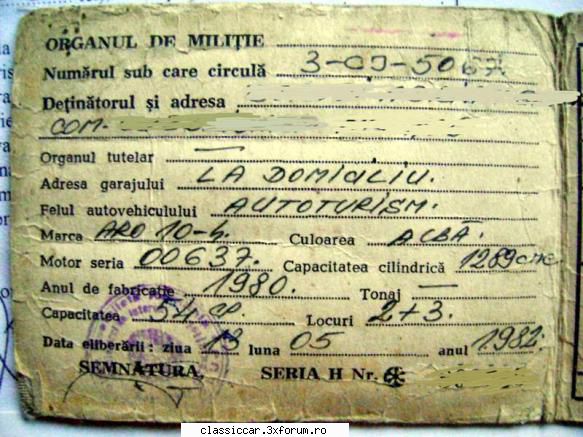 ORGANUL DE MILIȚIE
Numărul sub care circulă 3-CJ-5067
Deținătorul și adresa
COM.
Organul tutelar —
Adresa garajului LA DOMICILIU.
Felul autovehiculului AUTOTURISM.
Marca ARO 10-4. Culoarea ALBĂ
Motor seria 00637. Capacitatea cilindrică 1289 cmc
Anul de fabricație 1980. Tonaj —
Capacitatea 54 CP. Locuri 2+3.
Data eliberării: ziua 13 luna 05 anul 1982.
SEMNĂTURA SERIA H Nr.
classiccar.3xforum.ro